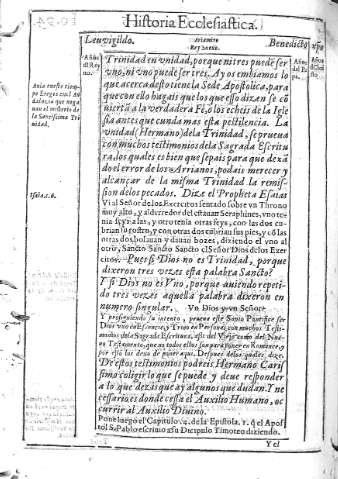 Historia Ecclesiastica.
Leuvigildo.
Benedicto
Trinidad en vnidad, porque ni tres puede ser
vno, ni vno puede ser tres. Ay os embiamos lo
que acerca desto tiene la Sede Apostolica, para
que con ello hagais que los que esso dizen se cõ
uiertã a la verdadera Fè, o los echeis de la Igle
sia antes que cunda mas esta pestilencia. La
vnidad (Hermano) de la Trinidad, se prueua
con muchos testimonios de la Sagrada Escritu
ra, los quales es bien que sepais para que dexã
do el error de los Arrianos, podais merecer y
alcançar de la misma Trinidad la remis-
sion de los pecados. Dize el Propheta Esaias
Vi al Señor de los Exercitos sentado sobre vn Throno
muy alto, y alderredor del estauan Seraphines, vno te-
nia seys alas, y otro tenia seys, con las dos cu-
brian su rostro, y con otras dos cubrian sus pies, y cõ las
otras dos bolauan, y dauan bozes, diziendo el vno al
otro, Sancto Sancto Sancto el Señor Dios de los Exer-
citos. Pues si Dios no es Trinidad, porque
dixeron tres vezes esta palabra Sancto?
Y si Dios no es Vno, porque auiendo repeti-
do tres vezes aquella palabra dixeron en
numero singular. Vn Dios y vn Señor?
Y prosiguiendo su intento, prueue este Santo Pontifice ser
Dios vno en Essencia, y Trino en Personas, con muchos Testi-
monios de la Sagrada Escritura, assi del Viejo como del Nue-
uo Testamento, que no todos ellos son para poner en Romance, y
por esso los dexo de poner aqui. Despues delos quales, dize.
De estos testimonios podreis Hermano Caris
simo coligir lo que se puede y deue responder
a lo que dezis que ay algunos que dudan. Y ne
cessario es donde cessa el Auxilio Humano, oc
currir al Auxilio Diuino.
Pone luego el Capitulo .2. de la Epistola .1. q̃ el Apos
tol S. Pablo escriuio a su Dicipulo Timoteo diziendo.
Y el
Isaia.c.6.